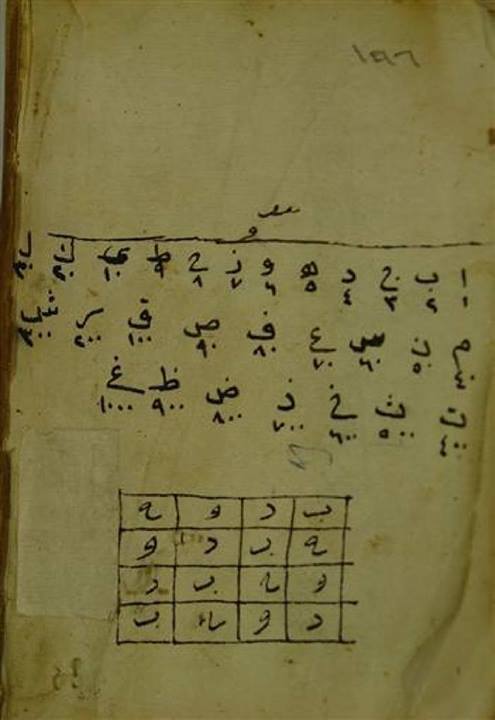 ١٩٦
ا ب ج د ه و ز ح ط ي
١ ٢ ٣ ٤ ٥ ٦ ٧ ٨ ٩ ١٠
م ن س ع ف ص ق ر ش
٤٠ ٥٠ ٦٠ ٧٠ ٨٠ ٩٠ ١٠٠ ٢٠٠ ٣٠٠
ت ث خ ذ ض ظ غ
٤٠٠ ٥٠٠ ٦٠٠ ٧٠٠ ٨٠٠ ٩٠٠ ١٠٠٠
ب د و ح
ح ب د و
و ح ب د
د و ح ب